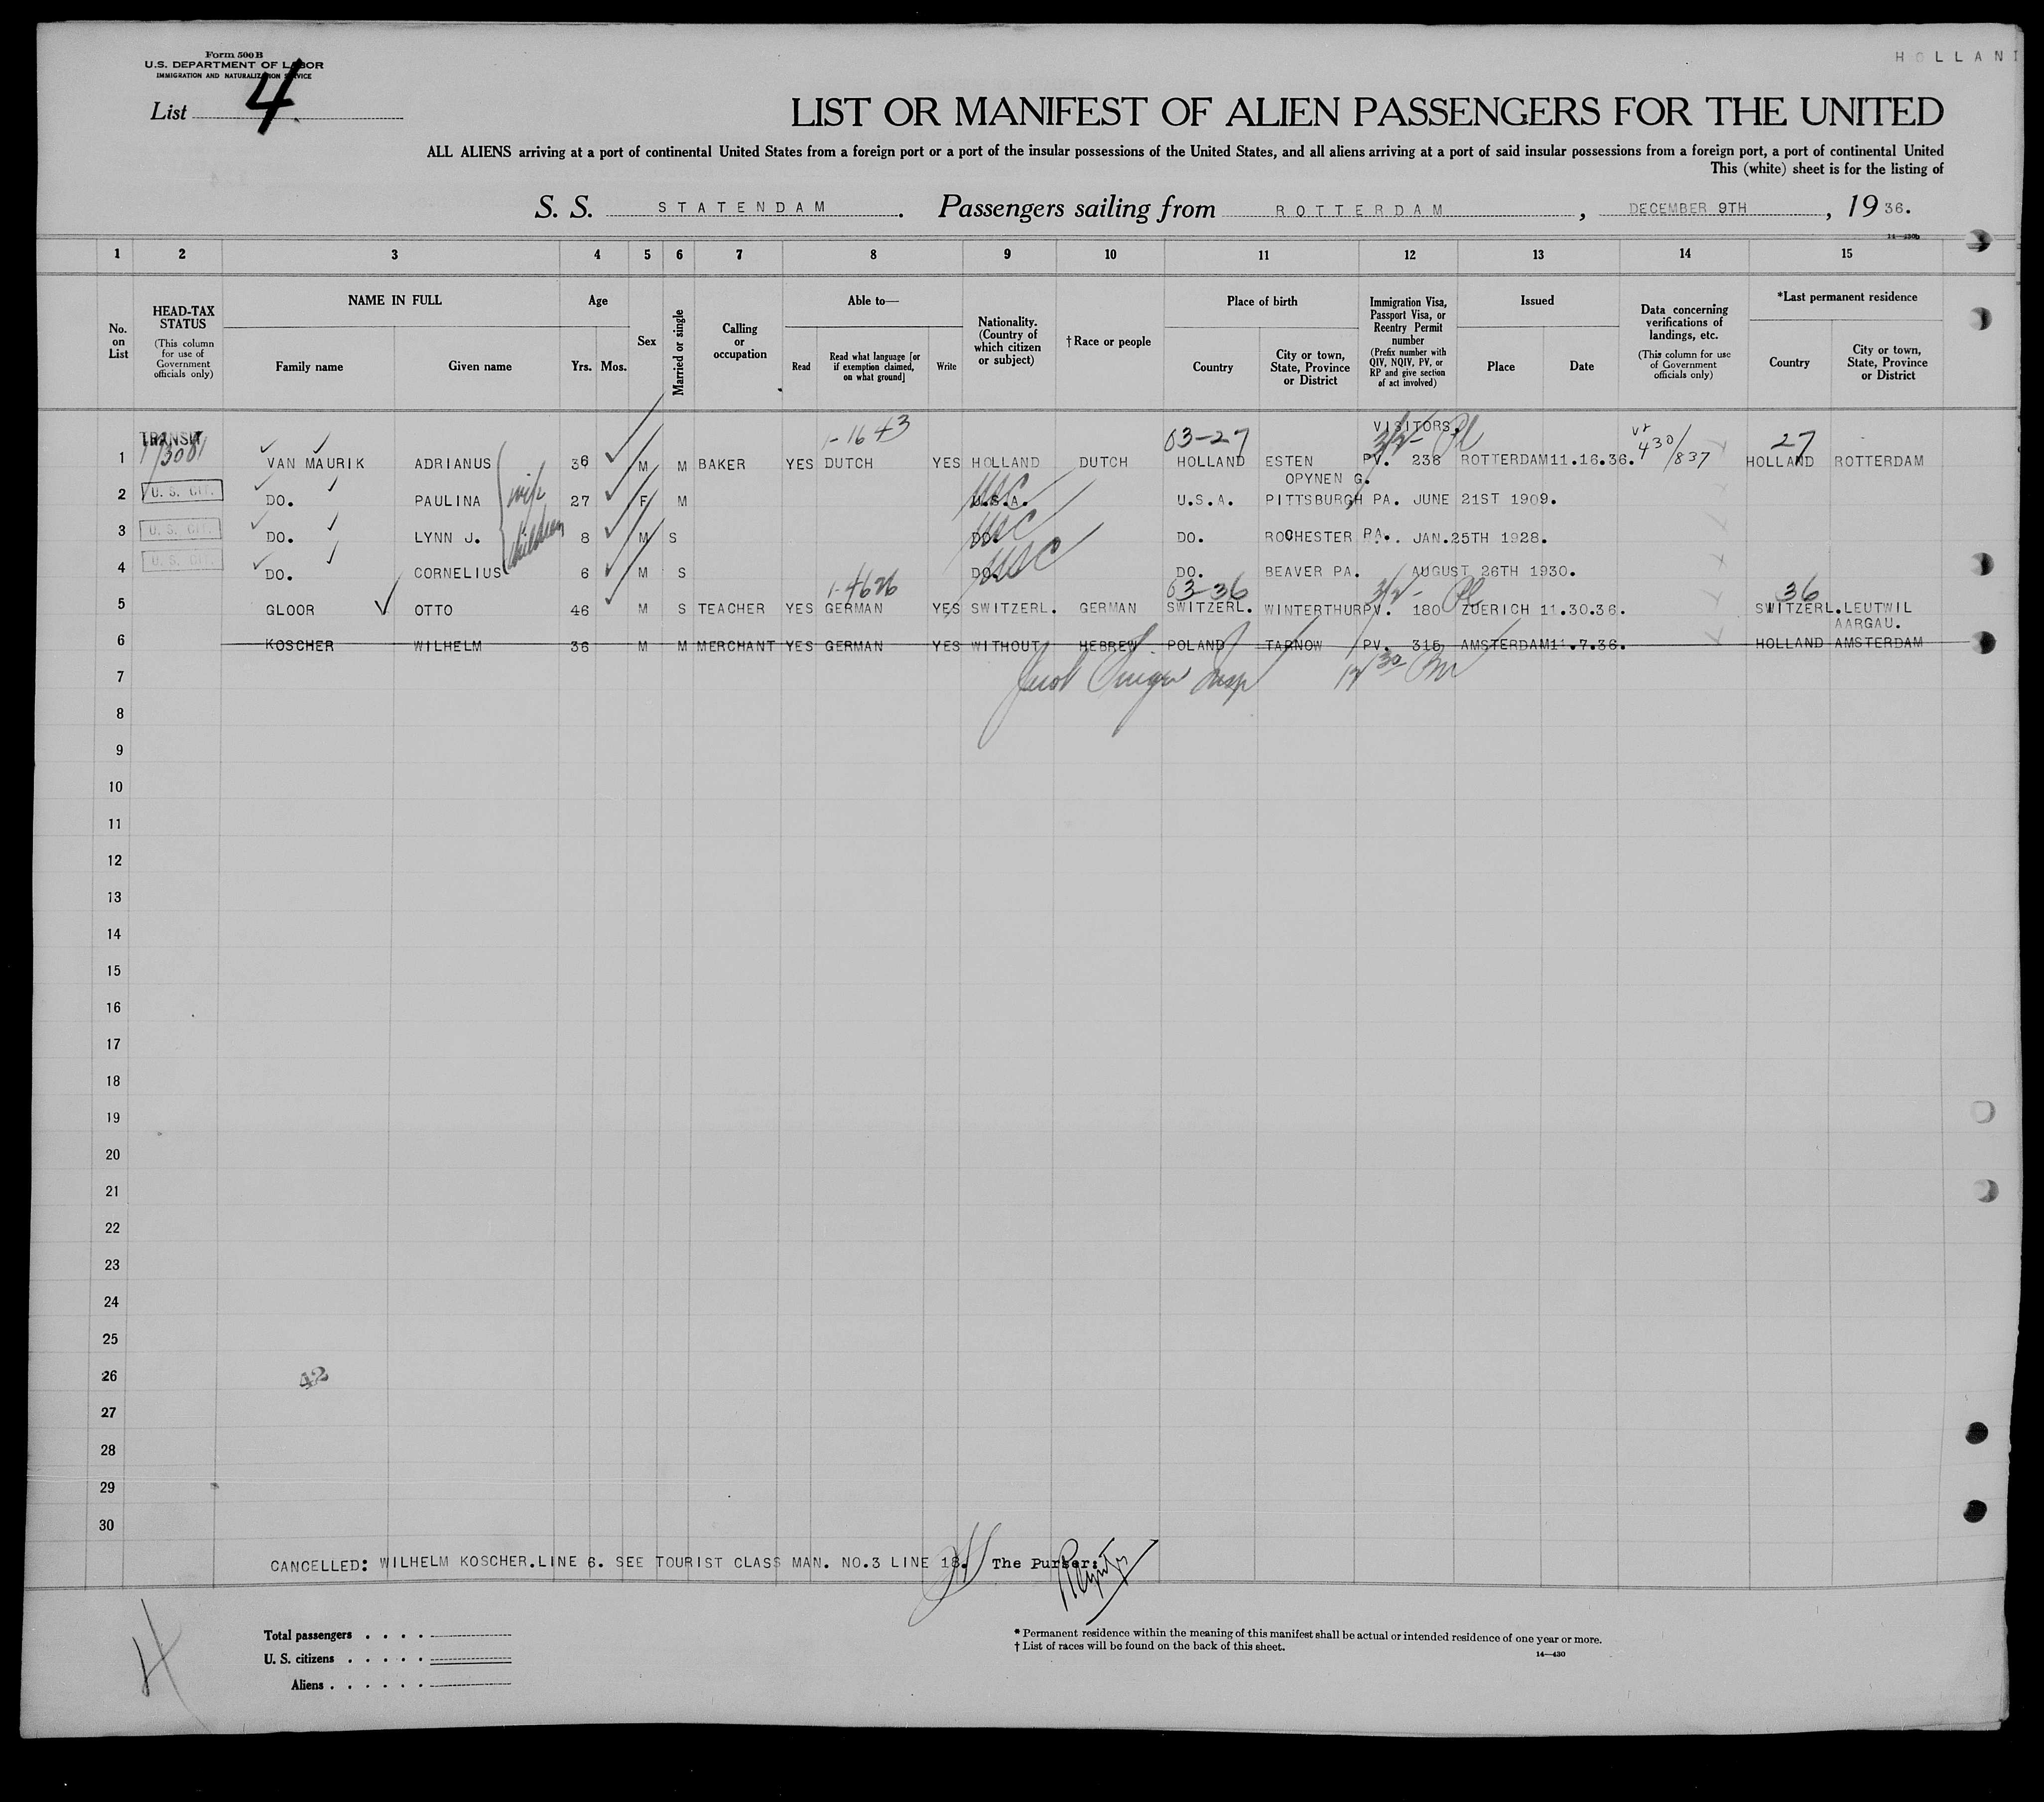 Form 500 B
U.S. DEPARTMENT OF LABOR
IMMIGRATION AND NATURALIZATION SERVICE
HOLLAN
List 4
LIST OR MANIFEST OF ALIEN PASSENGERS FOR THE UNITED
ALL ALIENS arriving at a port of continental United States from a foreign port or a port of the insular possessions of the United States, and all aliens arriving at a port of said insular possessions from a foreign port, a port of continental United
This (white) sheet is for the listing of
S. S. STATENDAM. Passengers sailing from ROTTERDAM, DECEMBER 9TH, 1936.
14—430b
1 2 3 4 5 6 7 8 9 10 11 12 13 14 15
No. on List
HEAD-TAX STATUS (This column for use of Government officials only)
NAME IN FULL Family name Given name
Age Yrs. Mos.
Sex
Married or single
Calling or occupation
Able to— Read Read what language [or if exemption claimed, on what ground] Write
Nationality. (Country of which citizen or subject)
†Race or people
Place of birth Country City or town, State, Province or District
Immigration Visa, Passport Visa, or Reentry Permit number (Prefix number with QIV, NQIV, PV, or RP and give section of act involved)
Issued Place Date
Data concerning verifications of landings, etc. (This column for use of Government officials only)
*Last permanent residence Country City or town, State, Province or District
TRANSIT 1-1643 03-27 VISITORS. 3/2- 430/837 27
1 VAN MAURIK ADRIANUS 36 M M BAKER YES DUTCH YES HOLLAND DUTCH HOLLAND ESTEN PV. 236 ROTTERDAM 11.16.36. HOLLAND ROTTERDAM
OPYNEN G.
2 U. S. CIT. DO. PAULINA wife 27 F M U.S.A. USC U.S.A. PITTSBURGH PA. JUNE 21ST 1909.
3 U. S. CIT. DO. LYNN J. children 8 M S DO. USC DO. ROCHESTER PA. JAN.25TH 1928.
4 U. S. CIT. DO. CORNELIUS 6 M S DO. USC DO. BEAVER PA. AUGUST 26TH 1930.
1-4626 03-36 3/2- 36
5 GLOOR OTTO 46 M S TEACHER YES GERMAN YES SWITZERL. GERMAN SWITZERL. WINTERTHUR PV. 180 ZUERICH 11.30.36. SWITZERL. LEUTWIL
AARGAU.
6 KOSCHER WILHELM 36 M M MERCHANT YES GERMAN YES WITHOUT HEBREW POLAND TARNOW PV. 315 AMSTERDAM 11.7.36. HOLLAND AMSTERDAM
7
8
9
10
11
12
13
14
15
16
17
18
19
20
21
22
23
24
25
26 42
27
28
29
30
CANCELLED: WILHELM KOSCHER.LINE 6. SEE TOURIST CLASS MAN. NO.3 LINE 18. The Purser:
Total passengers . . . .
U. S. citizens . . . . .
Aliens . . . . . .
* Permanent residence within the meaning of this manifest shall be actual or intended residence of one year or more.
† List of races will be found on the back of this sheet.
14—430